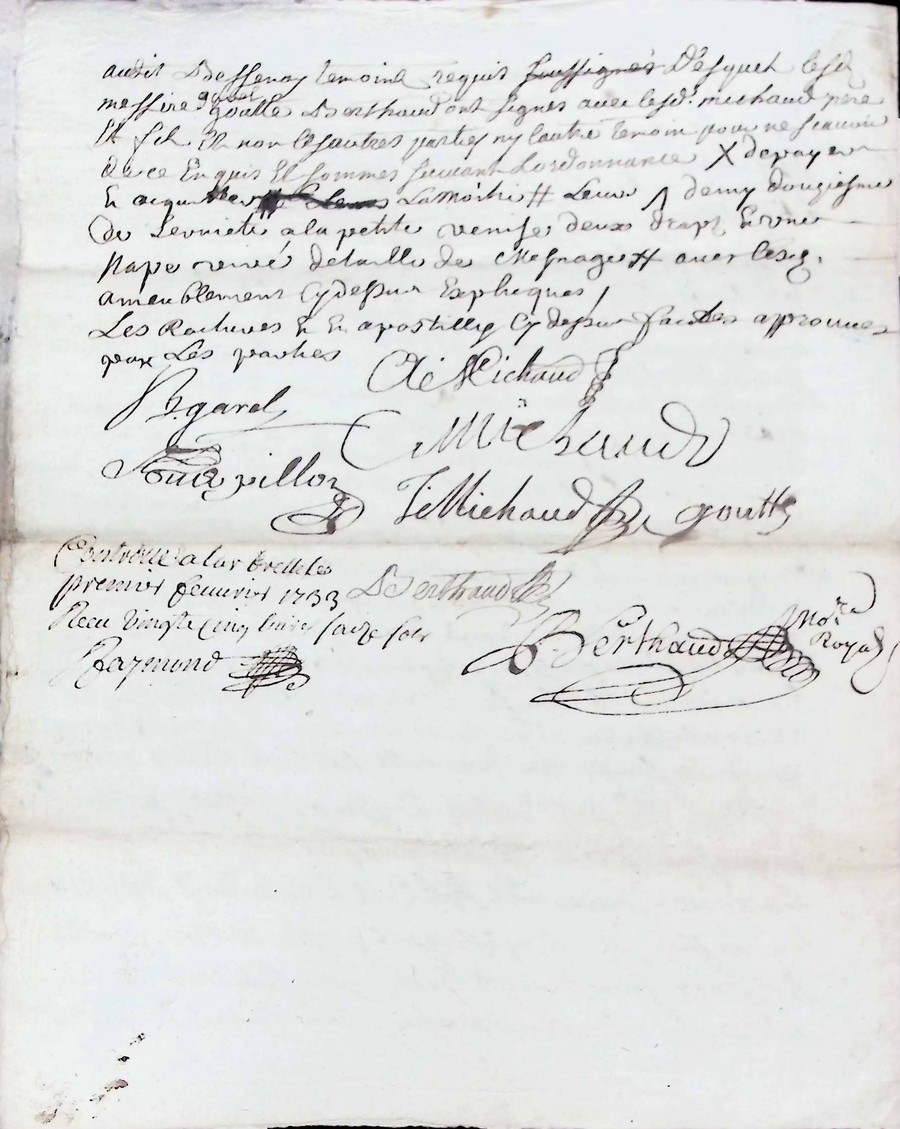 audit Dessenay temoins requis soussignés Desquels lesd
messire garel goutte Berthaud ont signés avec lesd. michaud père
et fils et non les autres parties ny l'autre temoin pour ne scavoir
de ce Enquis Et sommes suivant Lordonnance X de payer
En acquitter # La Moitié # Leur /\ demy dougiesme
de serviete a la petite venise deux draps Et une
Nape de de mesnage # avec lesd.
ameublement Cydessus Expliqués /
Les Ratures Et En apostilles Cydessus faictes approuvés
par Les parties
Michaud
B. garel
Michaud
J Michaud goutte
Controllé a Larbrelle le
premier feuvrier 1733 Berthaud
Recu vingte cinq livres saize sols
Raymond
Berthaud No.re Royal